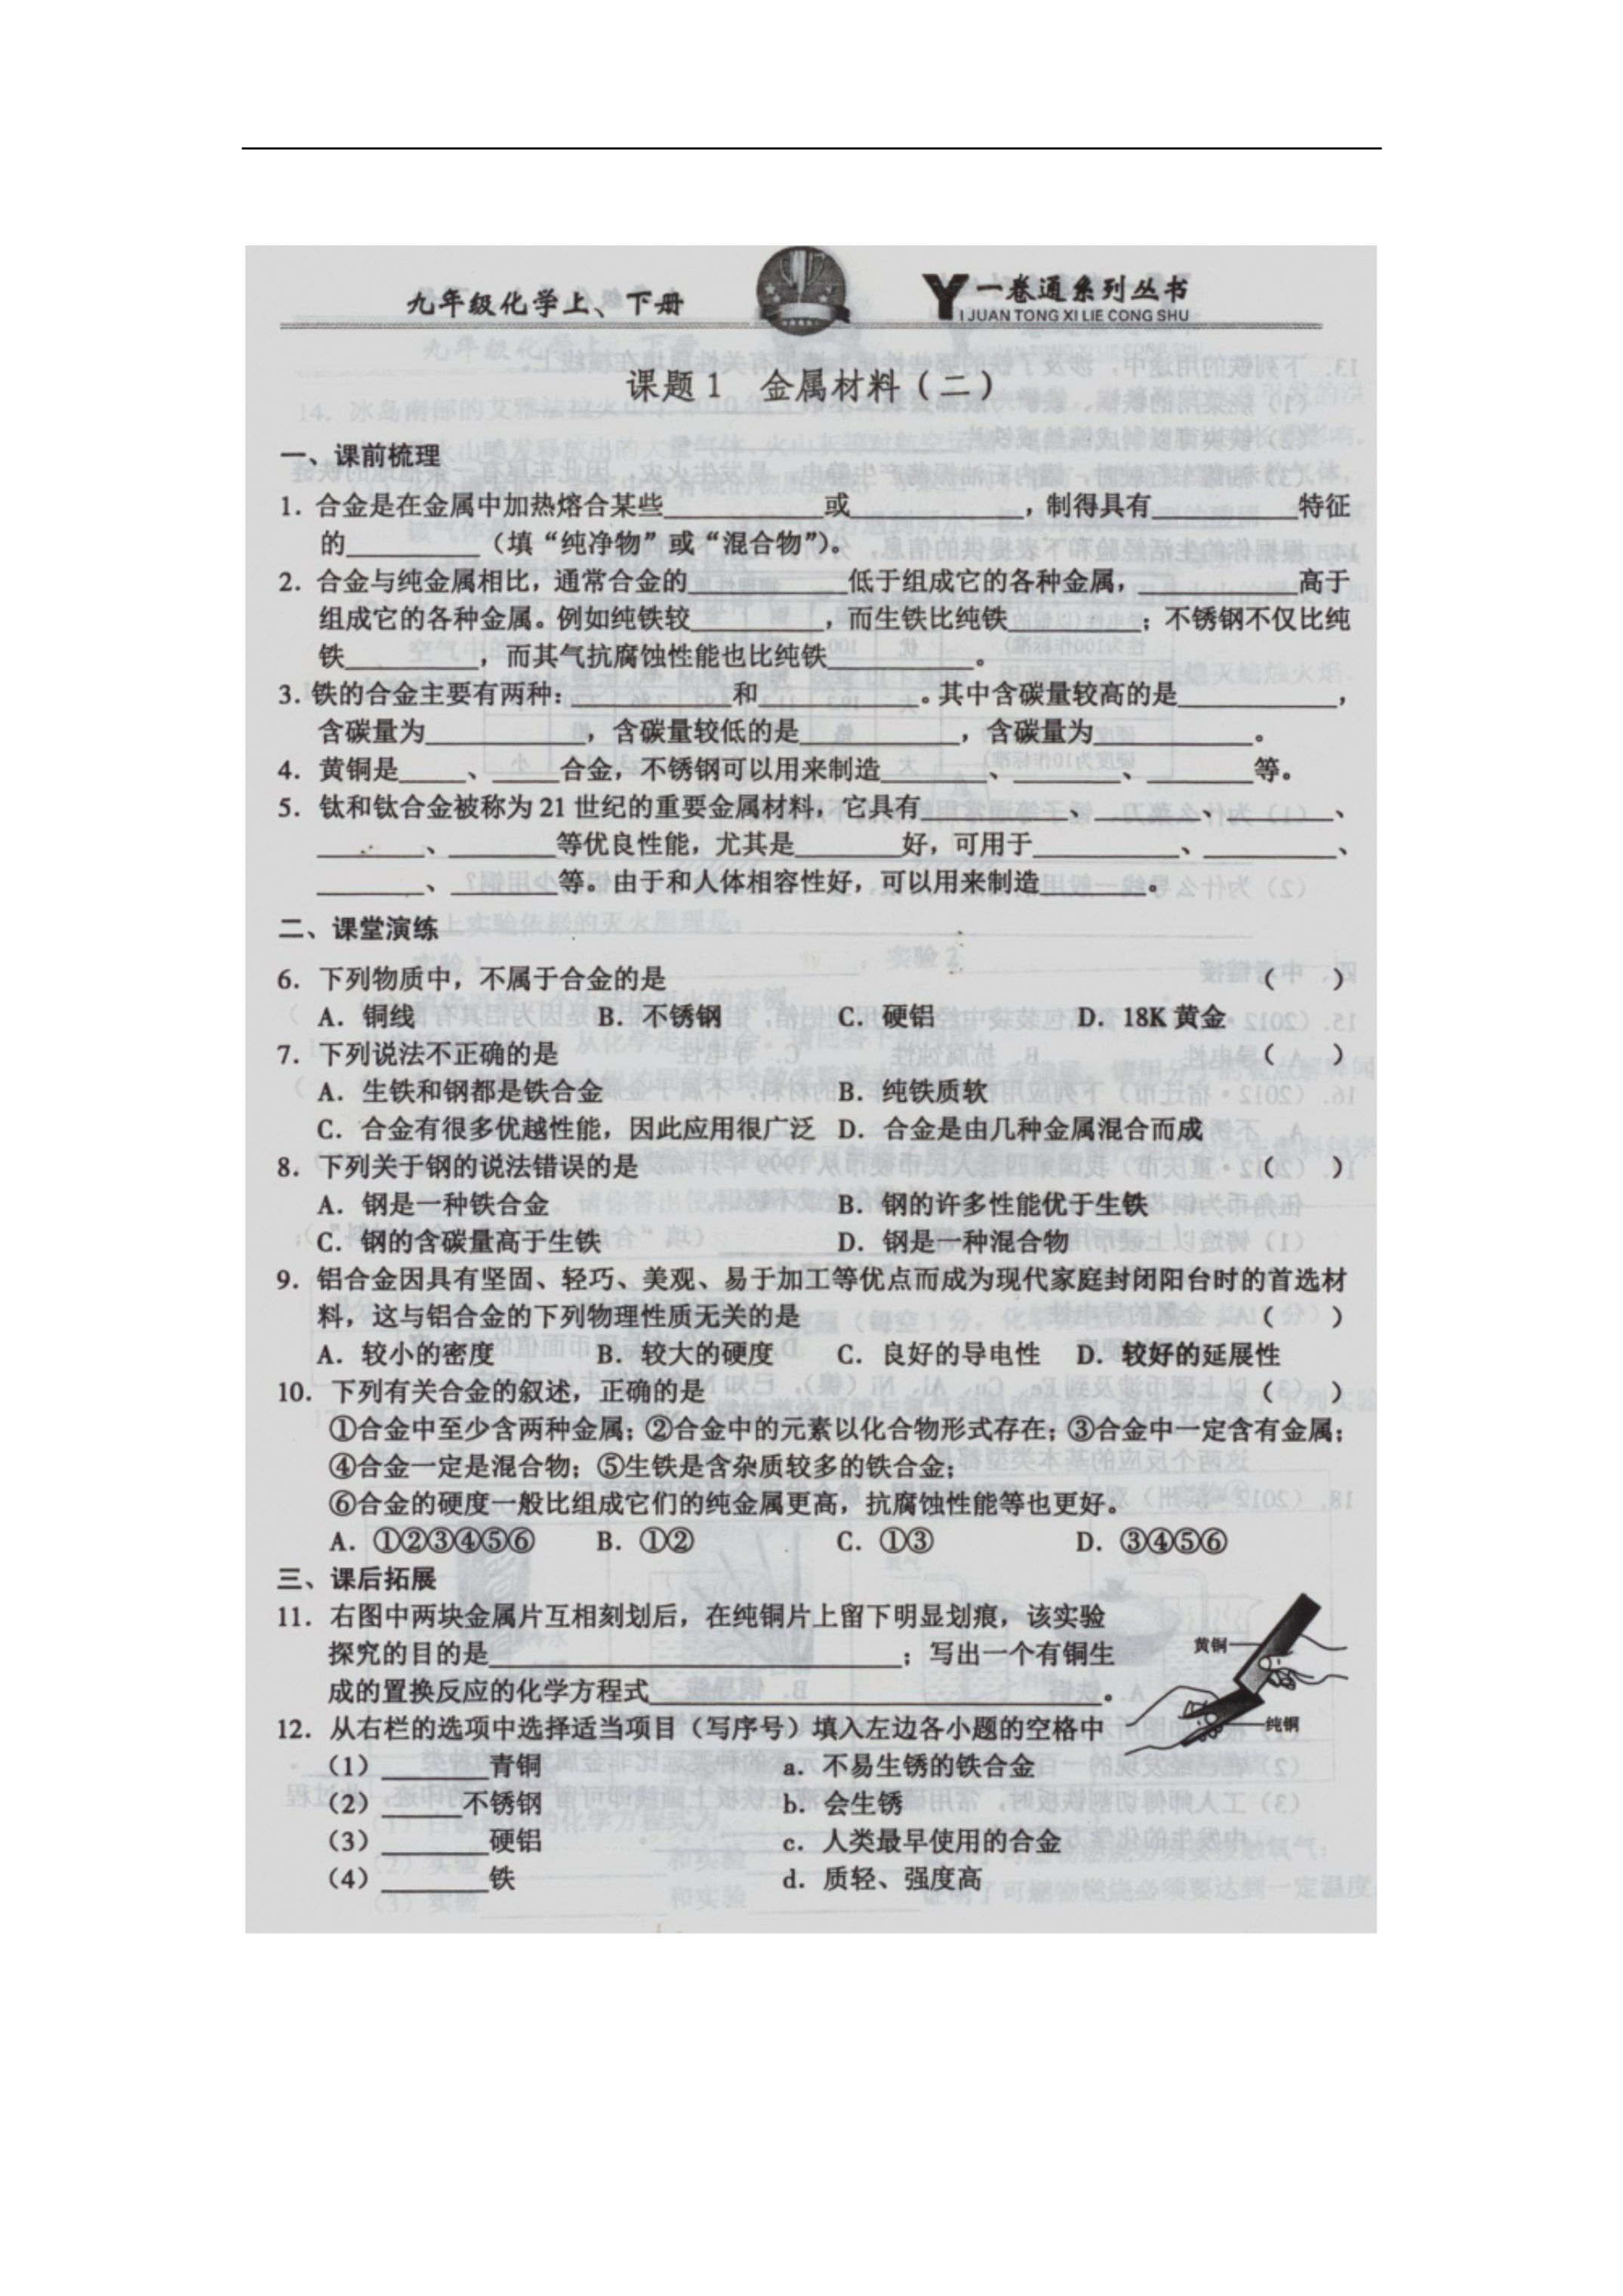 九年级化学上、下册
Y一卷通系列丛书
I JUAN TONG XI LIE CONG SHU
课题1 金属材料(二)
一、课前梳理
1. 合金是在金属中加热熔合某些____________或____________,制得具有____________特征
的____________(填“纯净物”或“混合物”)。
2. 合金与纯金属相比,通常合金的____________低于组成它的各种金属,____________高于
组成它的各种金属。例如纯铁较____________,而生铁比纯铁____________;不锈钢不仅比纯
铁____________,而其气抗腐蚀性能也比纯铁____________。
3. 铁的合金主要有两种:____________和____________。其中含碳量较高的是____________,
含碳量为____________,含碳量较低的是____________,含碳量为____________。
4. 黄铜是_____、_____合金,不锈钢可以用来制造________、________、________等。
5. 钛和钛合金被称为21世纪的重要金属材料,它具有____________、________、________、
________、________等优良性能,尤其是________好,可用于____________、__________、
________、________等。由于和人体相容性好,可以用来制造________。
二、课堂演练
6. 下列物质中,不属于合金的是 ( )
A. 铜线 B. 不锈钢 C. 硬铝 D. 18K 黄金
7. 下列说法不正确的是 ( )
A. 生铁和钢都是铁合金 B. 纯铁质软
C. 合金有很多优越性能,因此应用很广泛 D. 合金是由几种金属混合而成
8. 下列关于钢的说法错误的是 ( )
A. 钢是一种铁合金 B. 钢的许多性能优于生铁
C. 钢的含碳量高于生铁 D. 钢是一种混合物
9. 铝合金因具有坚固、轻巧、美观、易于加工等优点而成为现代家庭封闭阳台时的首选材
料,这与铝合金的下列物理性质无关的是 ( )
A. 较小的密度 B. 较大的硬度 C. 良好的导电性 D. 较好的延展性
10. 下列有关合金的叙述,正确的是 ( )
①合金中至少含两种金属;②合金中的元素以化合物形式存在;③合金中一定含有金属;
④合金一定是混合物;⑤生铁是含杂质较多的铁合金;
⑥合金的硬度一般比组成它们的纯金属更高,抗腐蚀性能等也更好。
A. ①②③④⑤⑥ B. ①② C. ①③ D. ③④⑤⑥
三、课后拓展
11. 右图中两块金属片互相刻划后,在纯铜片上留下明显划痕,该实验
探究的目的是______________________________;写出一个有铜生
成的置换反应的化学方程式__________________________________。
黄铜
纯铜
12. 从右栏的选项中选择适当项目(写序号)填入左边各小题的空格中
(1)________青铜 a. 不易生锈的铁合金
(2)______不锈钢 b. 会生锈
(3)________硬铝 c. 人类最早使用的合金
(4)________铁 d. 质轻、强度高